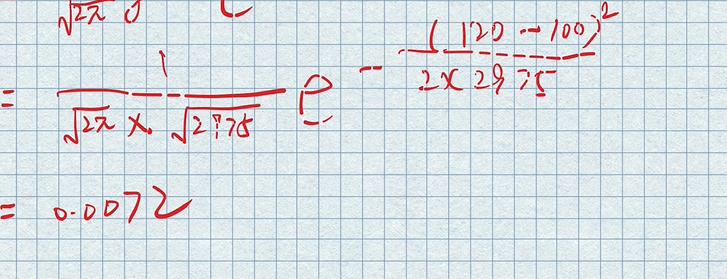 √2π σ e
= 1 / (√2π × √2975) e^(-(120-100)² / (2×2975))
= 0.0072